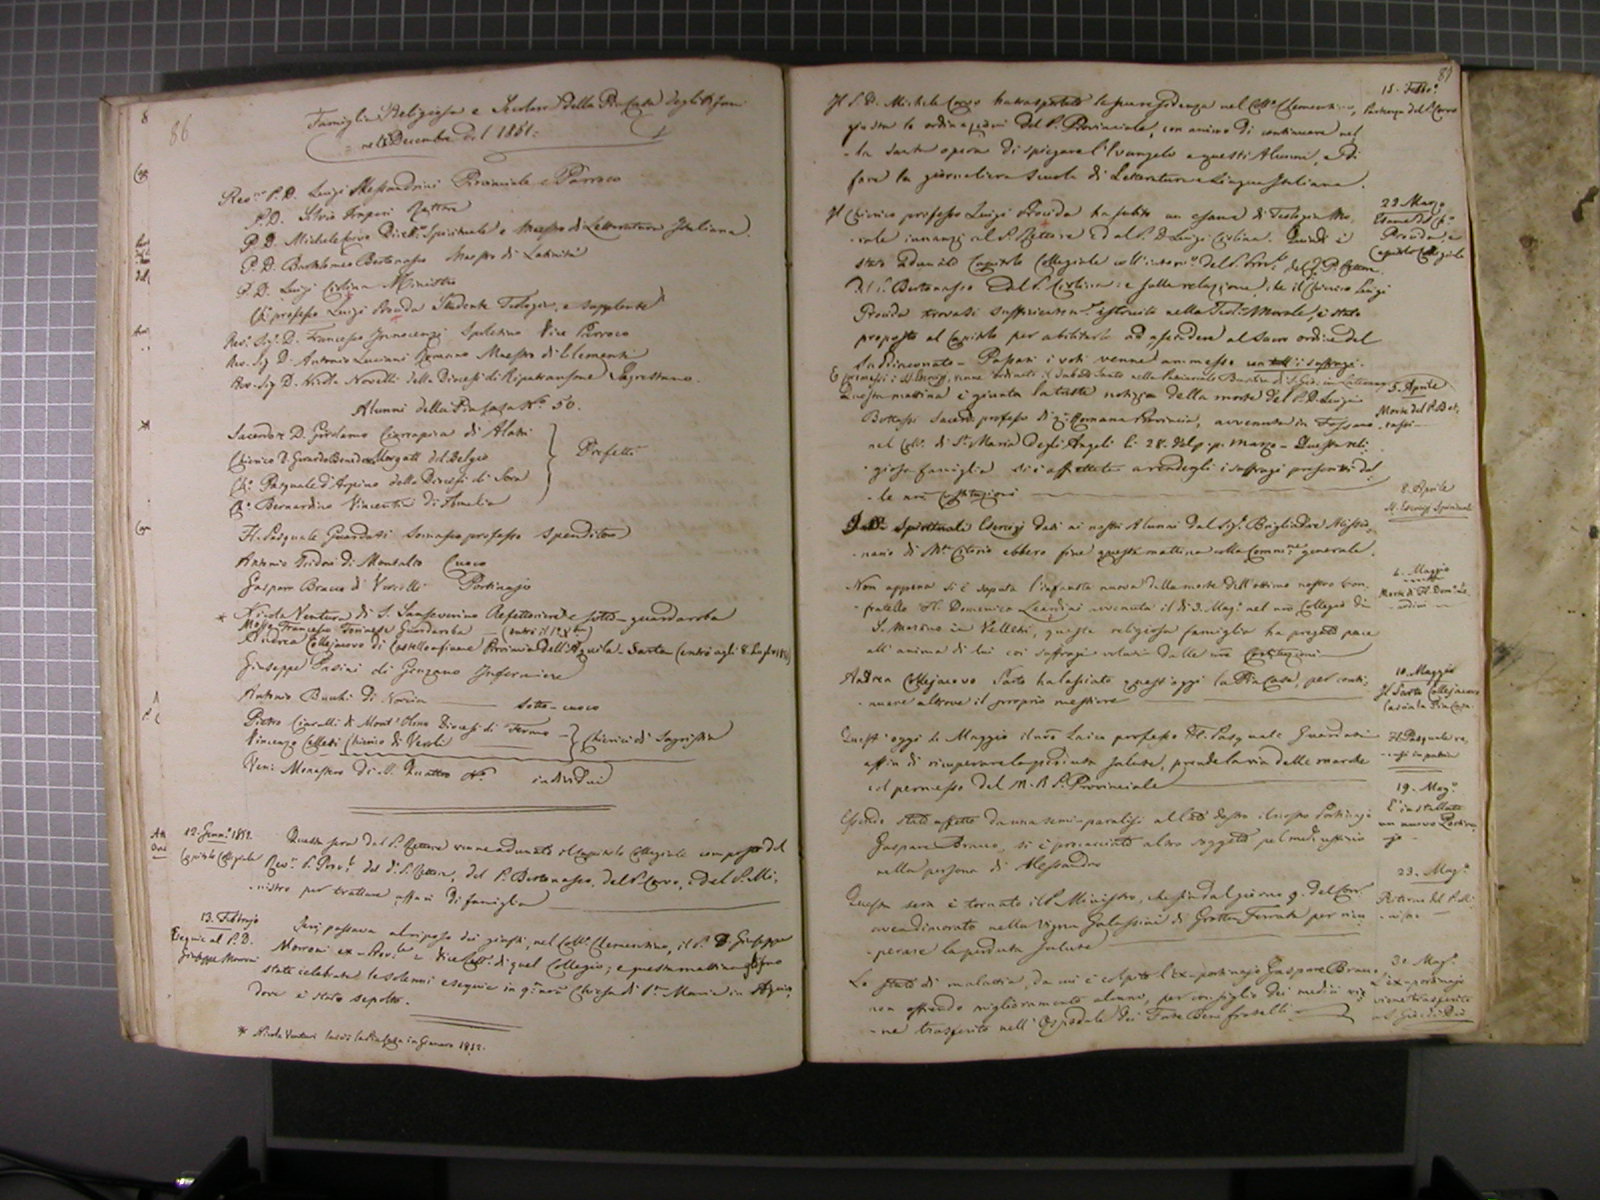 86
Famiglia Religiosa e Secolare della Pia Casa degli Orfani
nel Decembre del 1851.
Rev.mo P. D. Luigi Alessandrini Provinciale e Parroco
P. D. Silvio Imperi Rettore
P. D. Michele Corvo Dirett.e Spirituale e Maestro di Letteratura Italiana.
P. D. Bartolomeo Bertonasco Maestro di Latinità
P. D. Luigi Cislina Ministro
Ch. professo Luigi Procida Studente Teologia, e supplente
Rev. Sig. D. Francesco Innocenzi Spoletino Vice Parroco
Rev. Sig. D. Antonio Luciani Romano Maestro di Elementi
Rev. Sig. D. Nicola Novelli della Diocesi di Ripatransone Sagrestano.
Alunni della Pia Casa N.o 50.
Sacerdote D. Girolamo di Alatri
Chierico D. Gerardo Bened. Morgatt del Belgio
Ch. Pasquale d'Arpino della Diocesi di Sora
Ch. Bernardino Vincentini di Amelia
Prefetti
Fr. Pasquale Guardati Somasco professo Spenditore
Antonio di Montalto Cuoco
Gaspare Bracco di Vercelli Portinajo
* Nicola Ventura di S. Sanseverino Refettoriere e sotto-guardaroba
Francesco Torinese Guardaroba (entrò il 1.o Xbre)
Andrea Collejacovo di Castellonfiume Provincia dell'Aquila - Sarto (entrò agli 8. Luglio 1851)
Giuseppe Pasini di Genzano Infermiere
Antonio di Norcia — sotto-cuoco
Pietro di Mont' Olmo Diocesi di Fermo
Vincenzo Celletti Chierico di Veroli
Chierici di Sagristia
Ven: Monastero di SS. Quattro N.o individui
12. Genn.o 1852.
Capitolo Collegiale
Questa sera dal P. Rettore venne adunato il Capitolo Collegiale composto del
Rev.mo P. Prov.le del d.o P. Rettore, del P. Bertonasco, del P. Corvo, e del P. Mi-
nistro per trattare affari di famiglia
13. Febbrajo
Esequie al P. D.
Giuseppe Morroni
Ieri passava al riposo dei giusti, nel Coll.o Clementino, il P. D. Giuseppe
Morroni ex-Prov.le e Vice Rett.e di quel Collegio; e questa mattina gli sono
state celebrate le solenni esequie in q.a nra Chiesa di S.ta Maria in Aquiro,
dove è stato sepolto.
* Nicola Venturi lasciò la Pia Casa in Gennaro 1852.
87
15. Febb.o
Partenza del P. Corvo
Il P. D. Michele Corvo ha trasportato la sua residenza nel Coll.o Clementino,
giusta le ordinazioni del P. Provinciale, con animo di continuare nel-
la santa opera di spiegare l'Evangelo a questi Alunni, e di
fare la giornaliera scuola di Letteratura e Lingua Italiana.
22 Marzo
Esame del Ch.o
Procida, e
Capitolo Collegiale
Il Chierico professo Luigi Procida ha subito un esame di Teologia Mo-
rale innanzi al P. Rettore ed al P. D. Luigi Cislina. Quindi è
stato adunato Capitolo Collegiale coll'interv.o del P. Prov.le del P. Rettore
del P. Bertonasco e del P. Cislina: e sulla relazione, che il Chierico Luigi
Procida trovasi sufficientem.e istruito nella Teol.a Morale, è stato
proposto al Capitolo per abilitarlo ad ascendere al Sacro ordine del
Suddiaconato - Passati i voti venne ammesso con tutti i suffragi.
E premessi i SS. Esercizj, venne ordinato il Sabato Santo nella Patriarcale Basilica di S. Gio. in Laterano
5. Aprile
Morte del P. Bot-
tassi
Questa mattina è giunta la triste notizia della morte del P. D. Luigi
Bottassi Sacerd. professo di q.a Romana Provincia, avvenuta in Fossano
nel Coll. di S.ta Maria degli Angeli li 28. del p. p. Marzo - Questa reli-
giosa famiglia si è affrettata a rendergli i suffragi prescritti dal-
le nre Costituzioni
8. Aprile
SS. Esercizj Spirituali
Spirituali Esercizj dati ai nostri Alunni dal Sig. Missio-
nario di M.te Citorio ebbero fine questa mattina colla Comm.ne generale.
6. Maggio
Morte di Fr. Dom.o Le-
andini
Non appena si è saputa l'infausta nuova della morte dell'ottimo nostro con-
fratello Fr. Domenico Leandini avvenuta il dì 3. Mag.o nel nro Collegio di
S. Martino in Velletri, questa religiosa famiglia ha pregato pace
all'anima di lui coi suffragi voluti dalle nre Costituzioni
10. Maggio
Il Sarto Collejacovo
lascia la Pia Casa.
Andrea Collejacovo Sarto ha lasciato quest'oggi la Pia Casa, per conti-
nuare altrove il proprio mestiere
Fr. Pasquale re-
casi in patria
Quest'oggi Maggio il nro Laico professo Fr. Pasquale Guardati
affin di ricuperare la perduta salute, prende la via delle Marche
col permesso del M. R. P. Provinciale
19. Mag.o
E' installato
un nuovo Portina-
jo
Essendo stato affetto da una semi-paralisi al lato destro il nostro Portinajo
Gaspare Bracco, si è procacciato altro soggetto pel med.o ufficio
nella persona di Alessandro
23. Mag.o
Ritorno del P. Mi-
nistro
Questa sera è tornato il P. Ministro, che sin dal giorno 9. del Corr.
avea dimorato nella vigna Galassini di Grotta Ferrata per ricu-
perare la perduta salute
30 Mag.o
L'ex-portinajo
viene trasferito
a S. Gio. di Dio
Lo stato di malattia, da cui è colpito l'ex-portinajo Gaspare Bracco,
non offrendo miglioramento alcuno, per consiglio dei medici vie-
ne trasferito nell'Ospedale dei Fate Bene fratelli